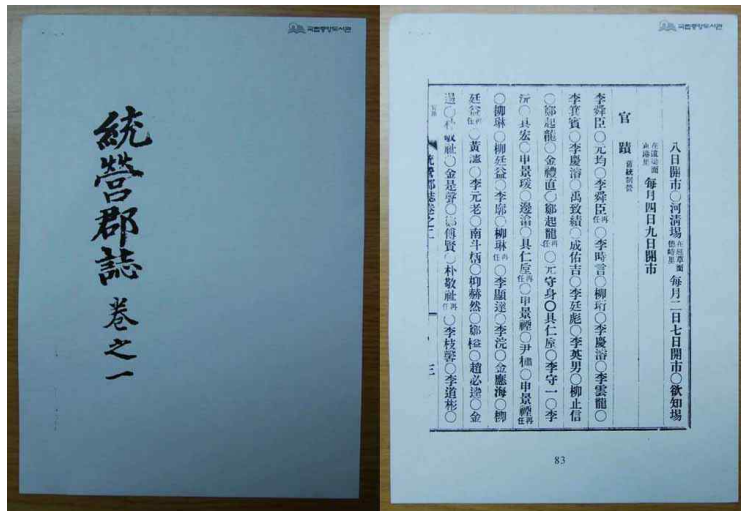 국립중앙도서관
統營郡誌 卷之一
국립중앙도서관
八日開市○河淸場 每月二日七日開市○欲知場
每月四日九日開市
官蹟 舊統制營
李舜臣○元均○李舜臣再任○李時言○柳珩○李慶濬○李雲龍○
李箕賓○李慶濬○禹致績○成佑吉○李廷彪○李英男○柳止信
○鄭起龍○金禮直○鄭起龍再任○元守身○具仁垕○李守一○李
沆○具宏○申景瑗○邊潝○具仁垕再任○申景禋○尹橚○申景禋再任
○柳琳○柳廷益○李廓○柳琳再任○李顯達○李浣○金應海○柳
廷益再任○黃瀗○李元老○南斗炳○柳赫然○鄭榏○趙必達○金
逿○朴敬祉○金是聲○鄭傅賢○朴敬祉再任○李枝馨○李道彬○
統營郡誌卷之一
三
83